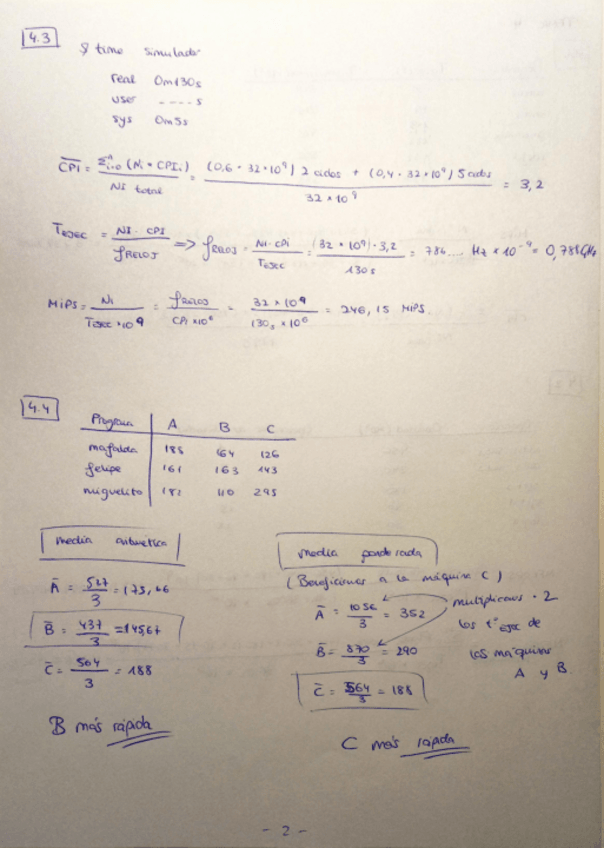 4.3
$ time simulador
real 0m130s
user ----s
sys 0m5s
CPI = Σi=0^n (Ni * CPIi) / NI total = (0,6 · 32·10⁹) 2 ciclos + (0,4 · 32·10⁹) 5 ciclos / 32×10⁹ = 3,2
TEJEC = NI · CPI / fRELOJ => fRELOJ = NI · CPI / TEJEC = (32 × 10⁹) · 3,2 / 130s = 786.... Hz × 10⁻⁹ = 0,788 GHz
MIPS = NI / TEJEC × 10⁹ = fRELOJ / CPI × 10⁶ = 32 × 10⁹ / 130s × 10⁶ = 246,15 MIPS
4.4
Programa A B C
mafalda 185 164 126
felipe 161 163 143
miguelito 181 110 295
media aritmética
Ā = 527/3 = 175,66
B̄ = 437/3 = 145,67
C̄ = 564/3 = 188
B más rápida
media ponderada
(Beneficiamos a la máquina C)
Ā = 1056/3 = 352
B̄ = 870/3 = 290
C̄ = 564/3 = 188
multiplicamos · 2
los tᵉejec de
las máquinas
A y B.
C más rápida
- 2 -